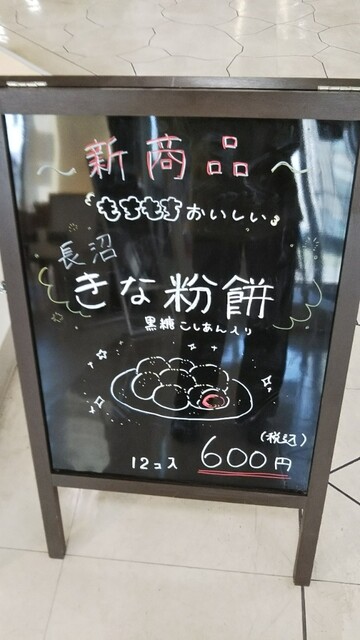 ～新商品～
もちもちおいしい
長沼
きな粉餅
黒糖こしあん入り
(税込)
12コ入 600円